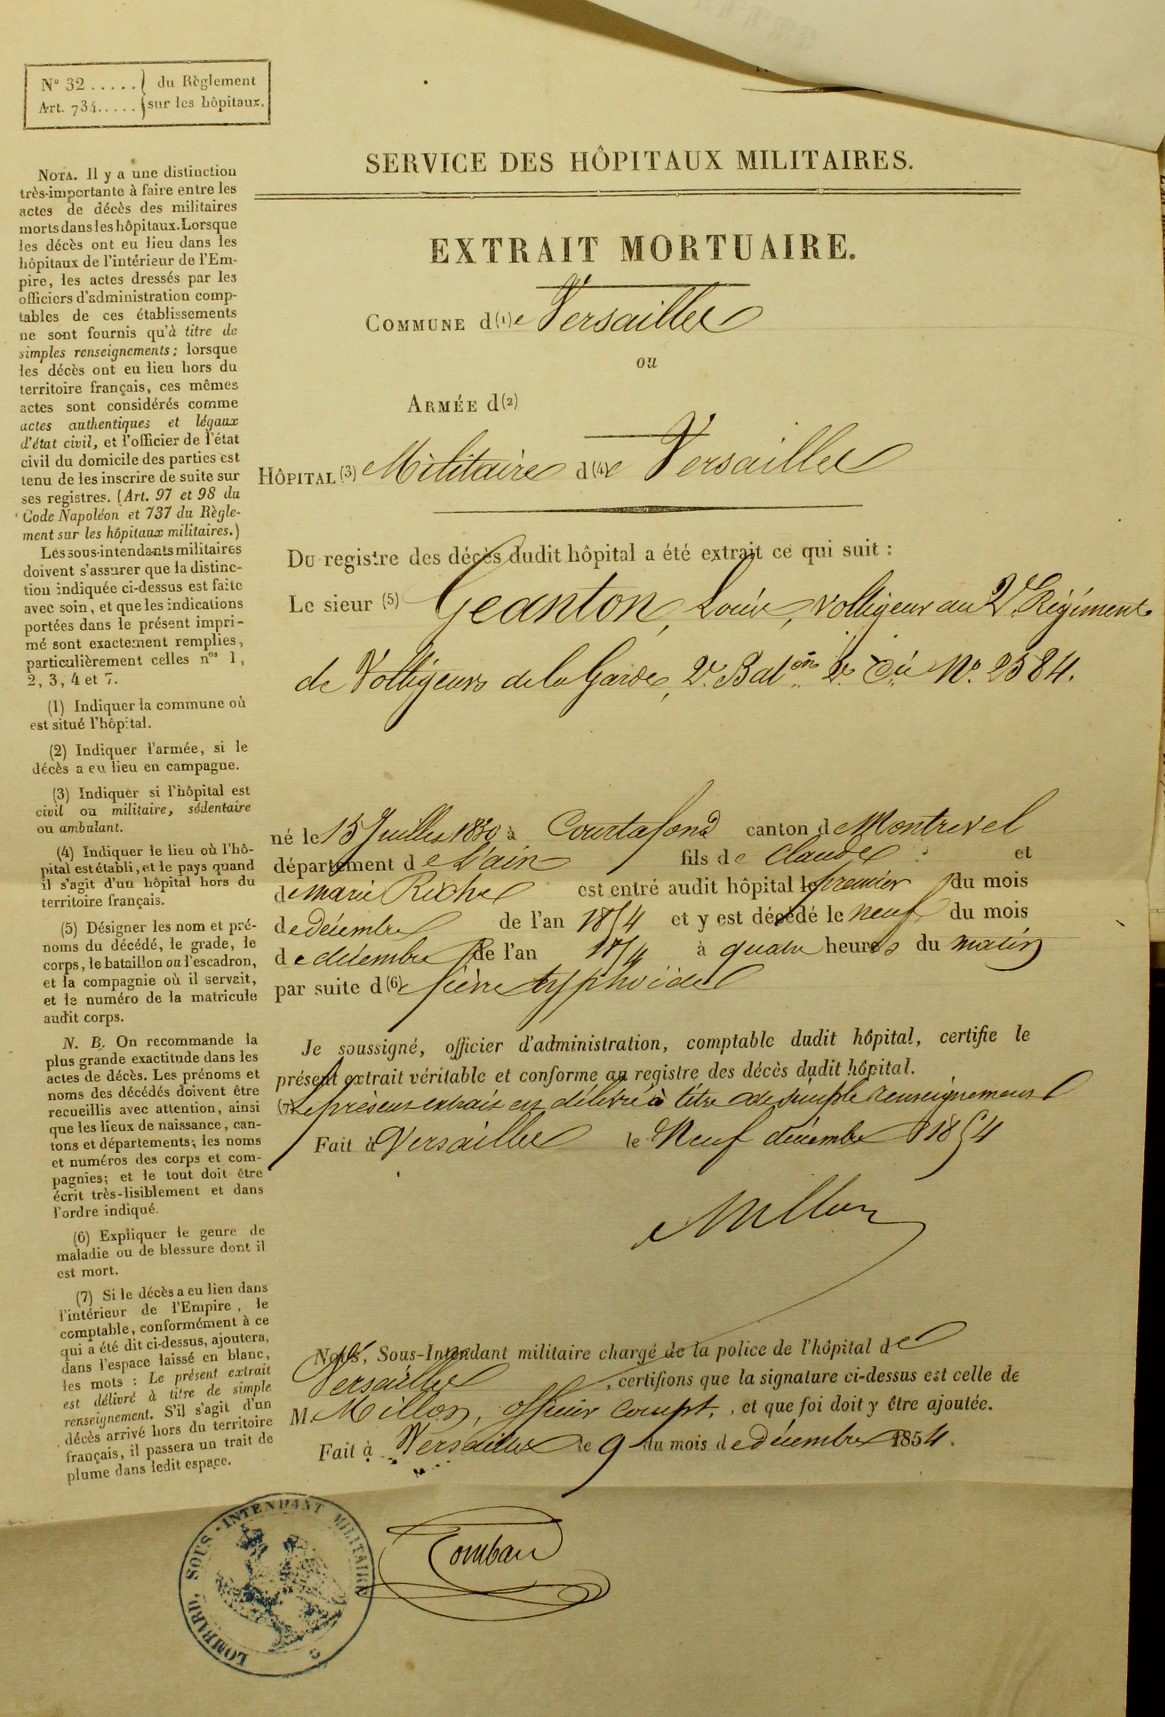 Nº 32 ..... du Règlement
Art. 734..... sur les hôpitaux.
NOTA. Il y a une distinction
très-importante à faire entre les
actes de décès des militaires
morts dans les hôpitaux. Lorsque
les décès ont eu lieu dans les
hôpitaux de l'intérieur de l'Em-
pire, les actes dressés par les
officiers d'administration comp-
tables de ces établissements
ne sont fournis qu'à titre de
simples renseignements; lorsque
les décès ont eu lieu hors du
territoire français, ces mêmes
actes sont considérés comme
actes authentiques et légaux
d'état civil, et l'officier de l'état
civil du domicile des parties est
tenu de les inscrire de suite sur
ses registres. (Art. 97 et 98 du
Code Napoléon et 737 du Règle-
ment sur les hôpitaux militaires.)
Les sous-intendants militaires
doivent s'assurer que la distinc-
tion indiquée ci-dessus est faite
avec soin, et que les indications
portées dans le présent impri-
mé sont exactement remplies,
particulièrement celles nos 1,
2, 3, 4 et 7.
(1) Indiquer la commune où
est situé l'hôpital.
(2) Indiquer l'armée, si le
décès a eu lieu en campagne.
(3) Indiquer si l'hôpital est
civil ou militaire, sédentaire
ou ambulant.
(4) Indiquer le lieu où l'hô-
pital est établi, et le pays quand
il s'agit d'un hôpital hors du
territoire français.
(5) Désigner les nom et pré-
noms du décédé, le grade, le
corps, le bataillon ou l'escadron,
et la compagnie où il servait,
et le numéro de la matricule
audit corps.
N. B. On recommande la
plus grande exactitude dans les
actes de décès. Les prénoms et
noms des décédés doivent être
recueillis avec attention, ainsi
que les lieux de naissance, can-
tons et départements; les noms
et numéros des corps et com-
pagnies; et le tout doit être
écrit très-lisiblement et dans
l'ordre indiqué.
(6) Expliquer le genre de
maladie ou de blessure dont il
est mort.
(7) Si le décès a eu lieu dans
l'intérieur de l'Empire, le
comptable, conformément à ce
qui a été dit ci-dessus, ajoutera,
dans l'espace laissé en blanc,
les mots : Le présent extrait
est délivré à titre de simple
renseignement. S'il s'agit d'un
décès arrivé hors du territoire
français, il passera un trait de
plume dans ledit espace.
SERVICE DES HÔPITAUX MILITAIRES.
EXTRAIT MORTUAIRE.
COMMUNE d(1)e Versailles
ou
ARMÉE d(2)
HÔPITAL (3) Militaire d(4)e Versailles
Du registre des décès dudit hôpital a été extrait ce qui suit :
Le sieur (5) Geanton, Louis, voltigeur au 2e Régiment
de Voltigeurs de la Garde, 2e Baton 2e Cie Nº 2584.
né le 15 Juillet 1830 à Courtafond canton de Montrevel
département de l'ain fils de Claude et
de marie Riche est entré audit hôpital le premier du mois
de décembre de l'an 1854 et y est décédé le neuf du mois
de décembre de l'an 1854 à quatre heures du matin
par suite d(6)e fièvre typhoïde
Je soussigné, officier d'administration, comptable dudit hôpital, certifie le
présent extrait véritable et conforme au registre des décès dudit hôpital.
(7) Le présent extrait est délivré à titre de simple renseignement
Fait à Versailles le Neuf décembre 1854
Millon
Nous, Sous-Intendant militaire chargé de la police de l'hôpital de
Versailles, certifions que la signature ci-dessus est celle de
M Millon, officier compt., et que foi doit y être ajoutée.
Fait à Versailles le 9 du mois de décembre 1854.
LOMBARD, SOUS-INTENDANT MILITAIRE